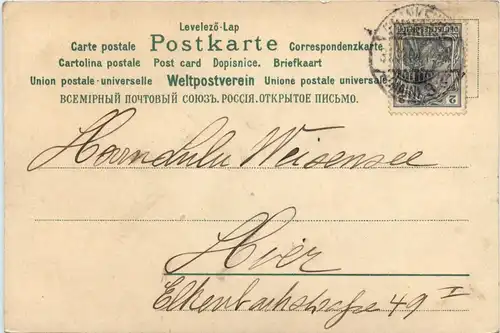 Levelező-Lap
Carte postale Postkarte Correspondenzkarte
Cartolina postale Post card Dopisnice. Briefkaart
Union postale universelle Weltpostverein Unione postale universale
ВСЕМІРНЫЙ ПОЧТОВЫЙ СОЮЗЪ. РОССІЯ. ОТКРЫТОЕ ПИСЬМО.
2 2
Weisensee
Hier
Elkenbachstraße 49 I